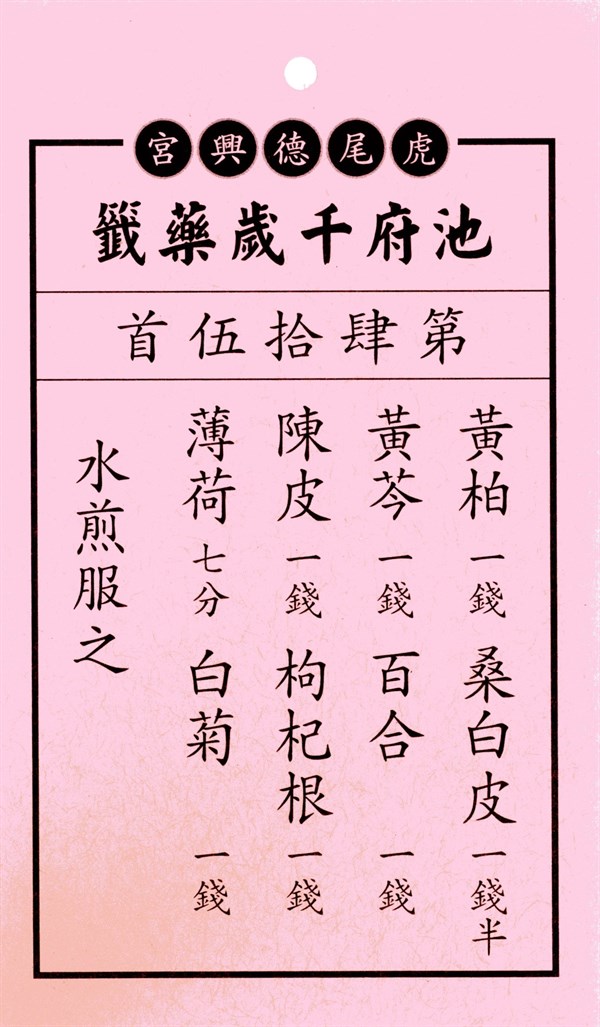 虎尾德興宮
池府千歲藥籤
第肆拾伍首
黃柏一錢 桑白皮一錢半
黃芩一錢 百合一錢
陳皮一錢 枸杞根一錢
薄荷七分 白菊一錢
水煎服之